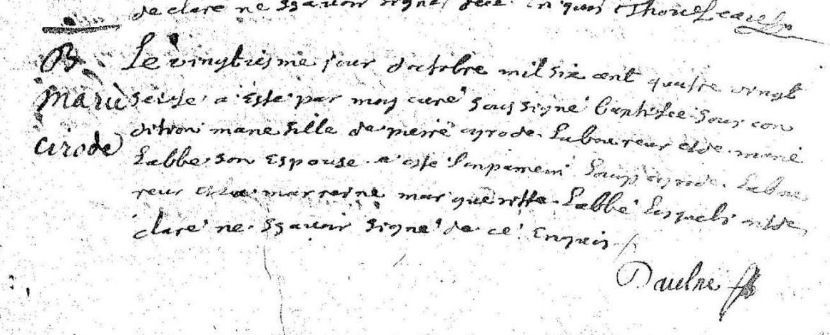 declare ne sçavoir signer de ce
B Le vingtiesme jour d'octobre mil six cent quatre vingt
marie seize a esté par moy curé soussigné baptisée sous con
cirode dition marie fille de pierre cyrode Laboureur et de marie
Labbé son espouse a esté son parein Loup cyrode Labou
reur et la marreine margueritte Labbé Lesquels ont de
claré ne sçavoir signé de ce Enquis
Daulne